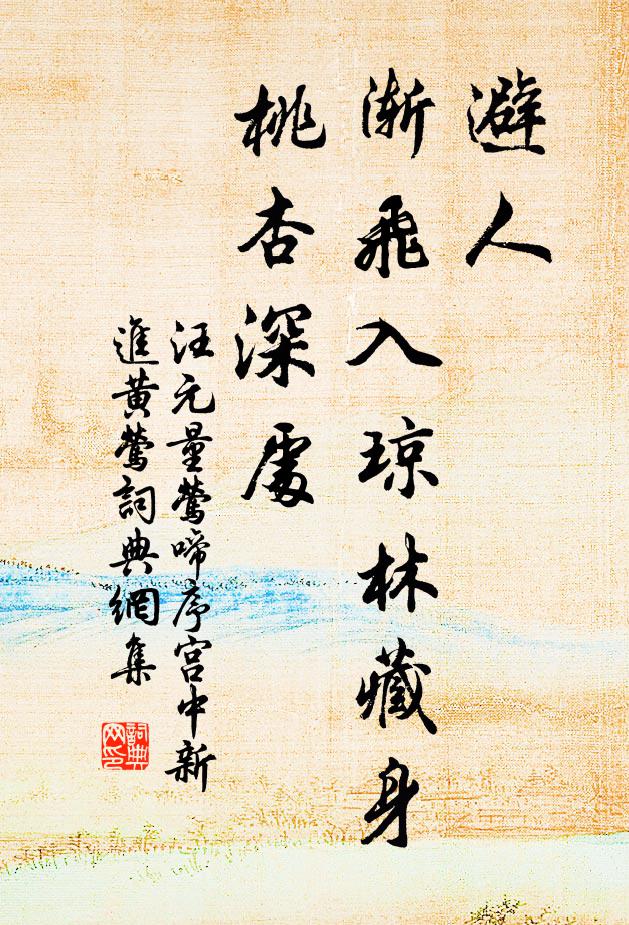 避人
渐飛入琼林藏身
桃杏深處
汪元量鶯啼序宫中新
進黄鶯詞典網集
詞典
网印